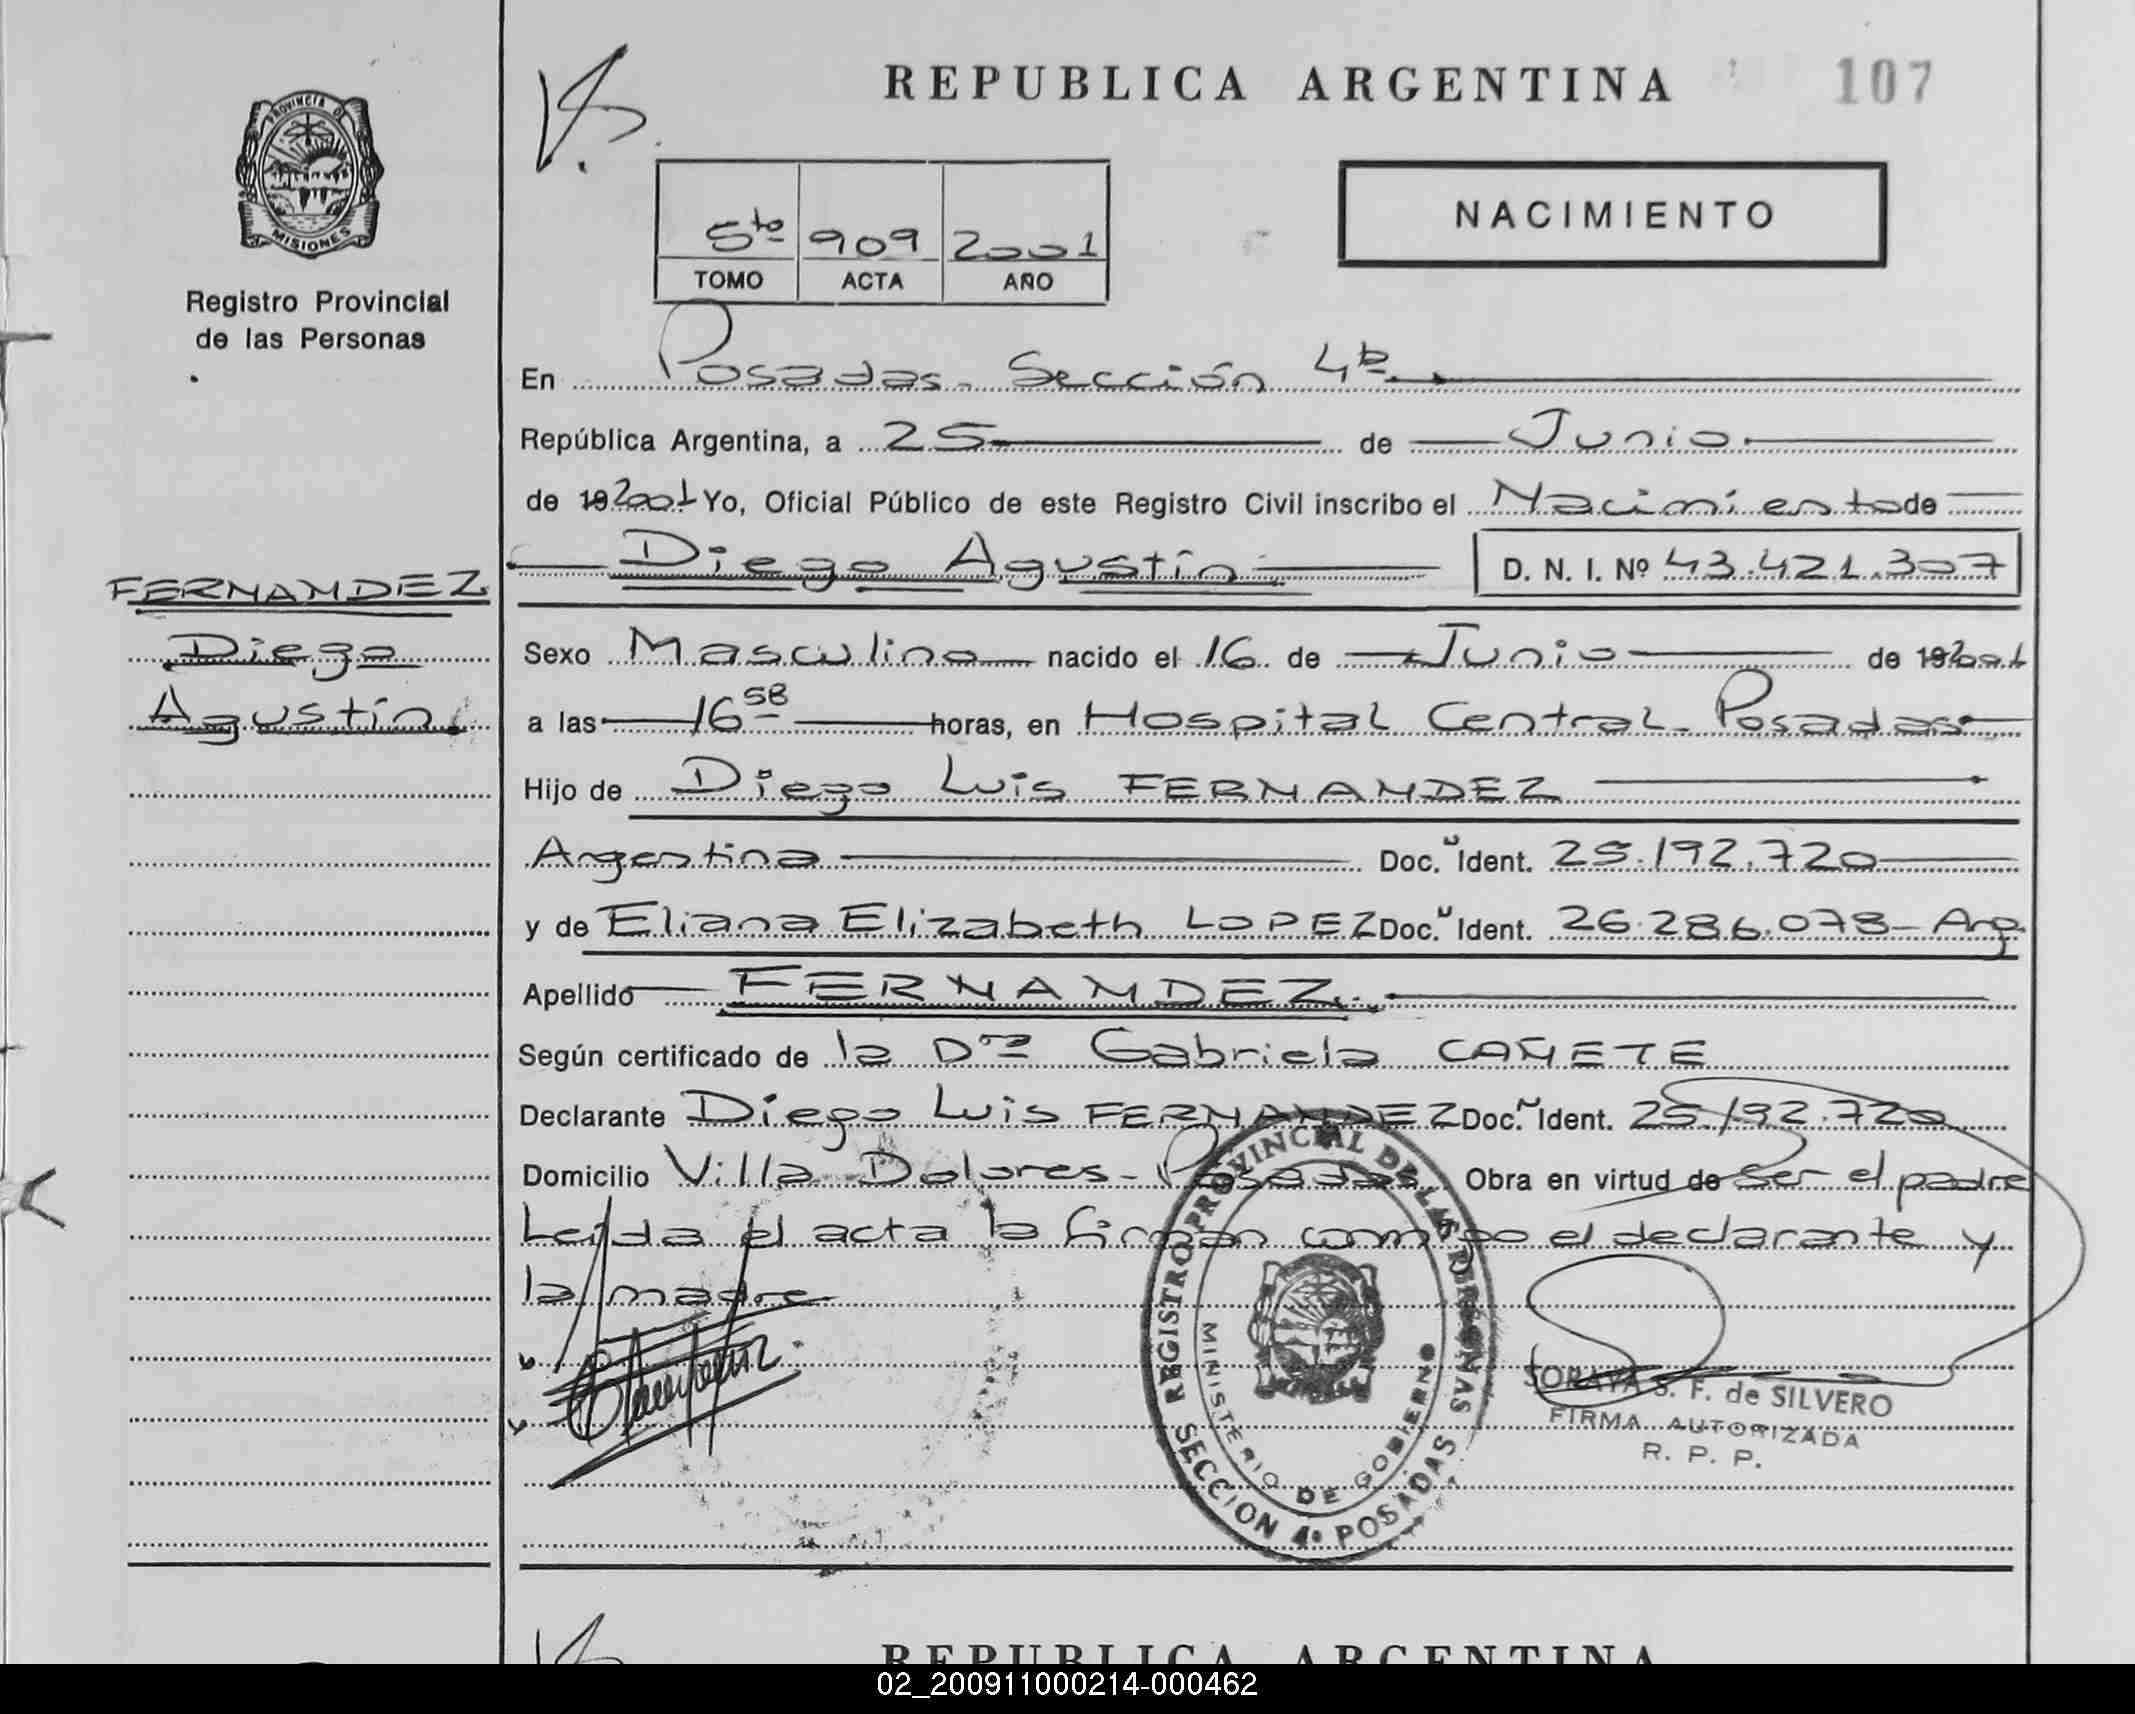 REPUBLICA ARGENTINA
107
PROVINCIA DE
MISIONES
Registro Provincial
de las Personas
NACIMIENTO
5to 909 2001
TOMO ACTA AÑO
En Posadas - Sección 4ta
República Argentina, a 25 de Junio
de 19 2001 Yo, Oficial Público de este Registro Civil inscribo el Nacimiento de
Diego Agustín D. N. I. Nº 43.421.307
FERNANDEZ
Diego
Agustín
Sexo Masculino nacido el 16 de Junio de 19 2001
a las 16 58 horas, en Hospital Central - Posadas
Hijo de Diego Luis FERNANDEZ
Argentina Doc. Ident. 25.192.720
y de Eliana Elizabeth LOPEZ Doc. Ident. 26.286.078 - Arg.
Apellido FERNANDEZ.
Según certificado de la Dra Gabriela CAÑETE
Declarante Diego Luis FERNANDEZ Doc. Ident. 25.192.720
Domicilio Villa Dolores - Posadas Obra en virtud de Ser el padre
Leída el acta la firman conmigo el declarante y
la madre
REGISTRO PROVINCIAL DE LAS PERSONAS
MINISTERIO DE GOBIERNO
SECCION 4º POSADAS
SORAYA S. F. de SILVERO
FIRMA AUTORIZADA
R. P. P.
REPUBLICA ARGENTINA
02_200911000214-000462